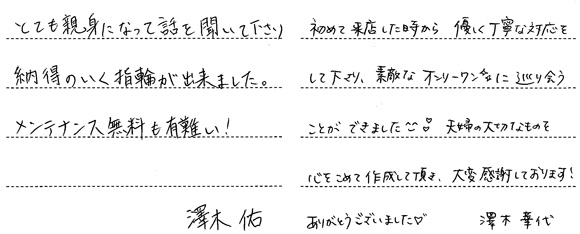 とても親身になって話を聞いて下さり
納得のいく指輪が出来ました。
メンテナンス無料も有難い！
澤木 佑
初めて来店した時から 優しく丁寧な対応を
して下さり、素敵なオンリーワンに巡り会う
ことができました 夫婦の大切なものを
心をこめて作成して頂き、大変感謝しております！
ありがとうございました♡ 澤木 華代